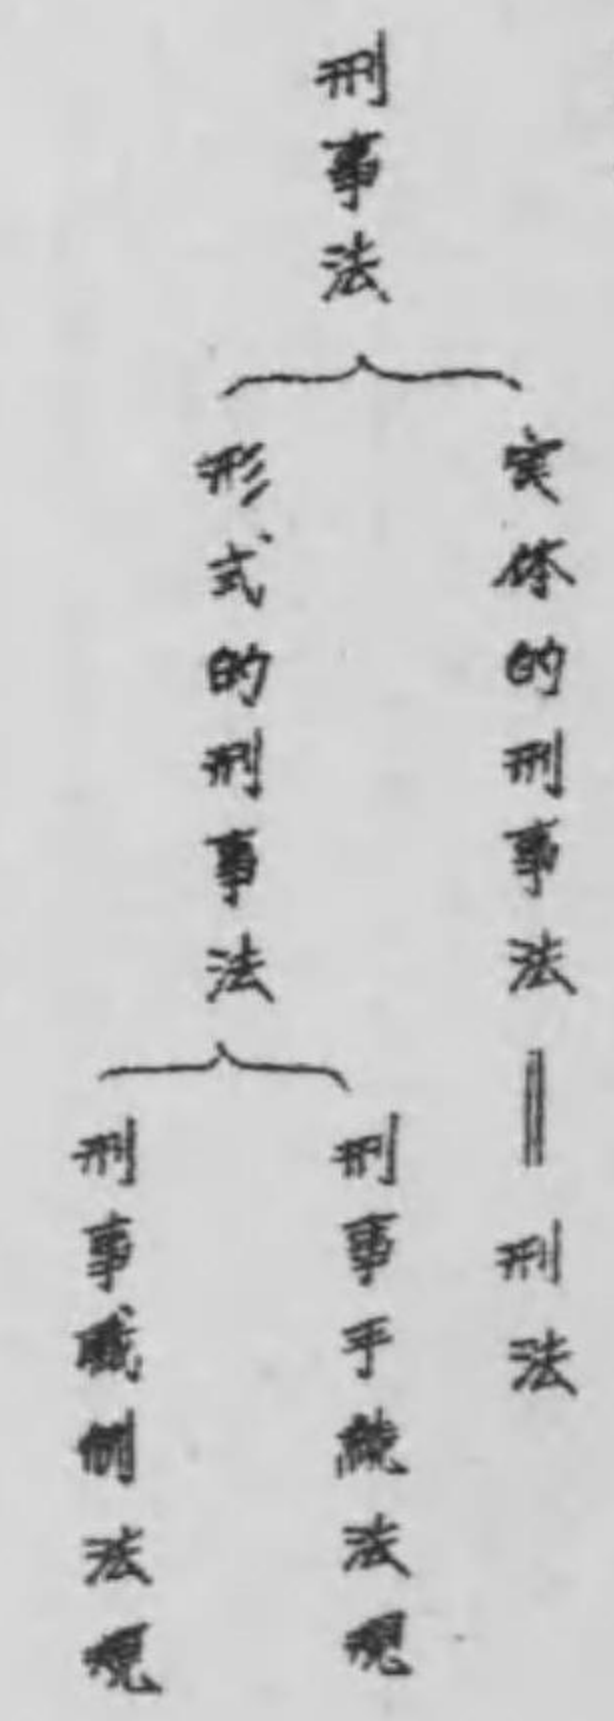 刑事法
実体的刑事法＝刑法
形式的刑事法
刑事手続法規
刑事職制法規